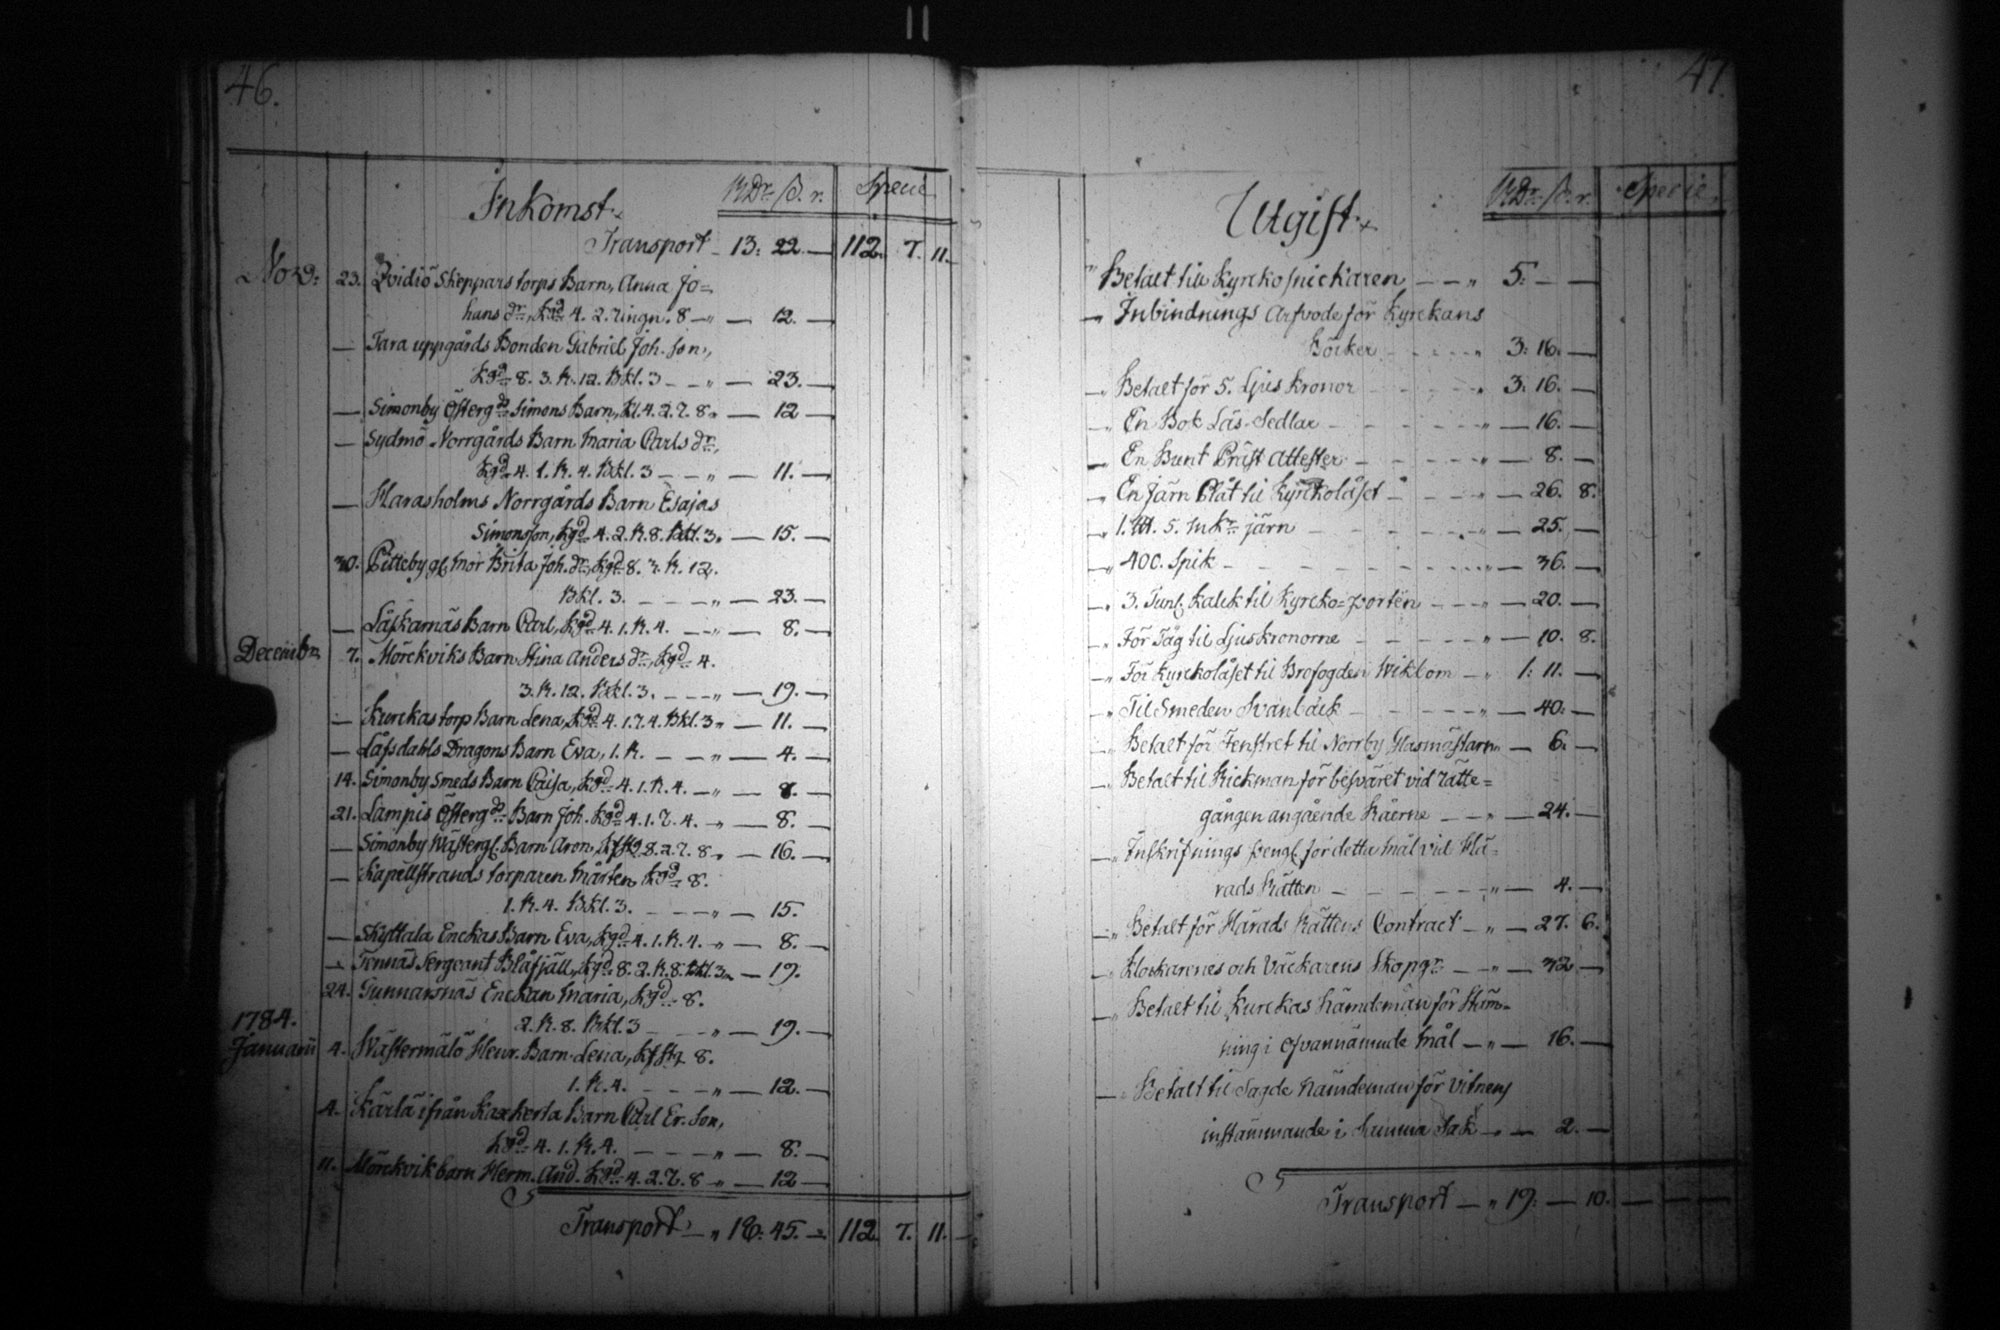 46.
Inkomst.
RDr. ß. r. Specie
Transport 13: 22. — 112. 7. 11.
Nov: 23. Qvidiö Skepparstorps Barn, Anna Jo=
hans dr., Kgd 4. 2. ringn. 8 — " — 12. —
— Tara uppgårds Bonden Gabriel Joh. Son,
Kgd 8. 3. R. 12. Bkl. 3 — — " — 23. —
— Simonby Österg ds Simons Barn, Kl. 4. 2. r. 8 " — 12 —
— Sydmö Norrgårds Barn Maria Carls dr.,
Kgd 4. 1. R. 4. Bkl. 3 — — " — 11. —
— Harasholms Norrgårds Barn Esajas
Simonsson, Kgd 4. 2. R. 8. Bkl. 3. — 15. —
30. Pitteby gl. Mor Brita Joh. dr., Kgd 8. 3. R. 12.
Bkl. 3. — — — " — 23. —
— Läskarnäs Barn Carl, Kgd 4. 1. R. 4. — — " — 8. —
Decembr. 7. Mörckviks Barn Stina Anders dr., Kgd 4.
3. R. 12. Bkl. 3. — — — " — 19. —
— Kurckas torp Barn Lena, Kgd 4. 1. r. 4. Bkl. 3 " — 11. —
— Låfsdahls Dragons Barn Eva, 1. R. — — " — 4. —
14. Simonby Smeds Barn Caisa, Kgd 4. 1. R. 4. — " — 8. —
21. Lampis Österg ds Barn Joh. Kgd 4. 1. r. 4. — " — 8. —
— Simonby Wästergl. Barn Aron, 8. 2. r. 8. " — 16. —
— Kapellstrands torparen Mårten, Kgd 8.
1. R. 4. Bkl. 3. — — — " — 15.
— Skyttala Enckas Barn Eva, Kgd 4. 1. R. 4. — " — 8. —
— Tennäs Sergeant Blåfjäll, Kgd 8. 2. R. 8. Bkl. 3. " — 19. —
24. Gunnarsnäs Enckan Maria, Kgd 8.
1784. 2. R. 8. Bkl. 3 — — " — 19. —
Januarii 4. Wästermälö Henr. Barn Lena, 8.
1. R. 4. — — — " — 12. —
4. Kärla ifrån Kaxkerta Barn Carl Er. Son,
Kgd 4. 1. R. 4. — — — " — 8. —
11. Mörckvik barn Herm. And. Kgd 4. 2. r. 8 " — 12 —
Transport — " 18: 45. — 112. 7. 11. —
47.
Utgift.
RDr. ß. r. Specie
" Betalt till Kyrckosnickaren — — " 5: — —
— " Inbindnings Arfvode för Kyrckans
Böcker — — — " 3: 16. —
— " Betalt för 5. Ljus kronor — — — " 3: 16. —
— " En Bok Läs-Sedlar — — — " — 16. —
— " En Bunt Präst Attester — — — " — 8. —
— " En Järn Plåt til Kyrckolåset — — — " — 26. 8.
— " 1. 5. Mkr. järn — — — " — 25. —
— " 400. Spik — — — " — 36. —
— " 3. Tunl. Kalck til Kyrcko=porten — — " — 20. —
— " För Tåg til Ljuskronorne — — — " — 10. 8.
— " För Kyrckolåset til Brofogden Wiklom — " 1: 11. —
— " Til Smeden Svanbäck — — — " — 40. —
" Betalt för Fenstret til Norrby Glasmästarn " — 6. —
— " Betalt til Rickman för besväret vid rätte=
gången angående Kåerne — — " — 24. —
— " Inskrifnings pengl. för detta Mål vid Hä=
rads Rätten — — — " — 4. —
— " Betalt för Härads Rättens Contract — " — 27. 6.
— " Klockarenes och Väckarens Skopgr. — — " — 32 —
— " Betalt til Kurckas Nämdeman för Stäm=
ning i ofvannämnde Mål — " — 16. —
— " Betalt til Sagde Nämdeman för Vitnens
instämmande i Samma Sak — " — 2. —
Transport — " 19: — 10. — — —